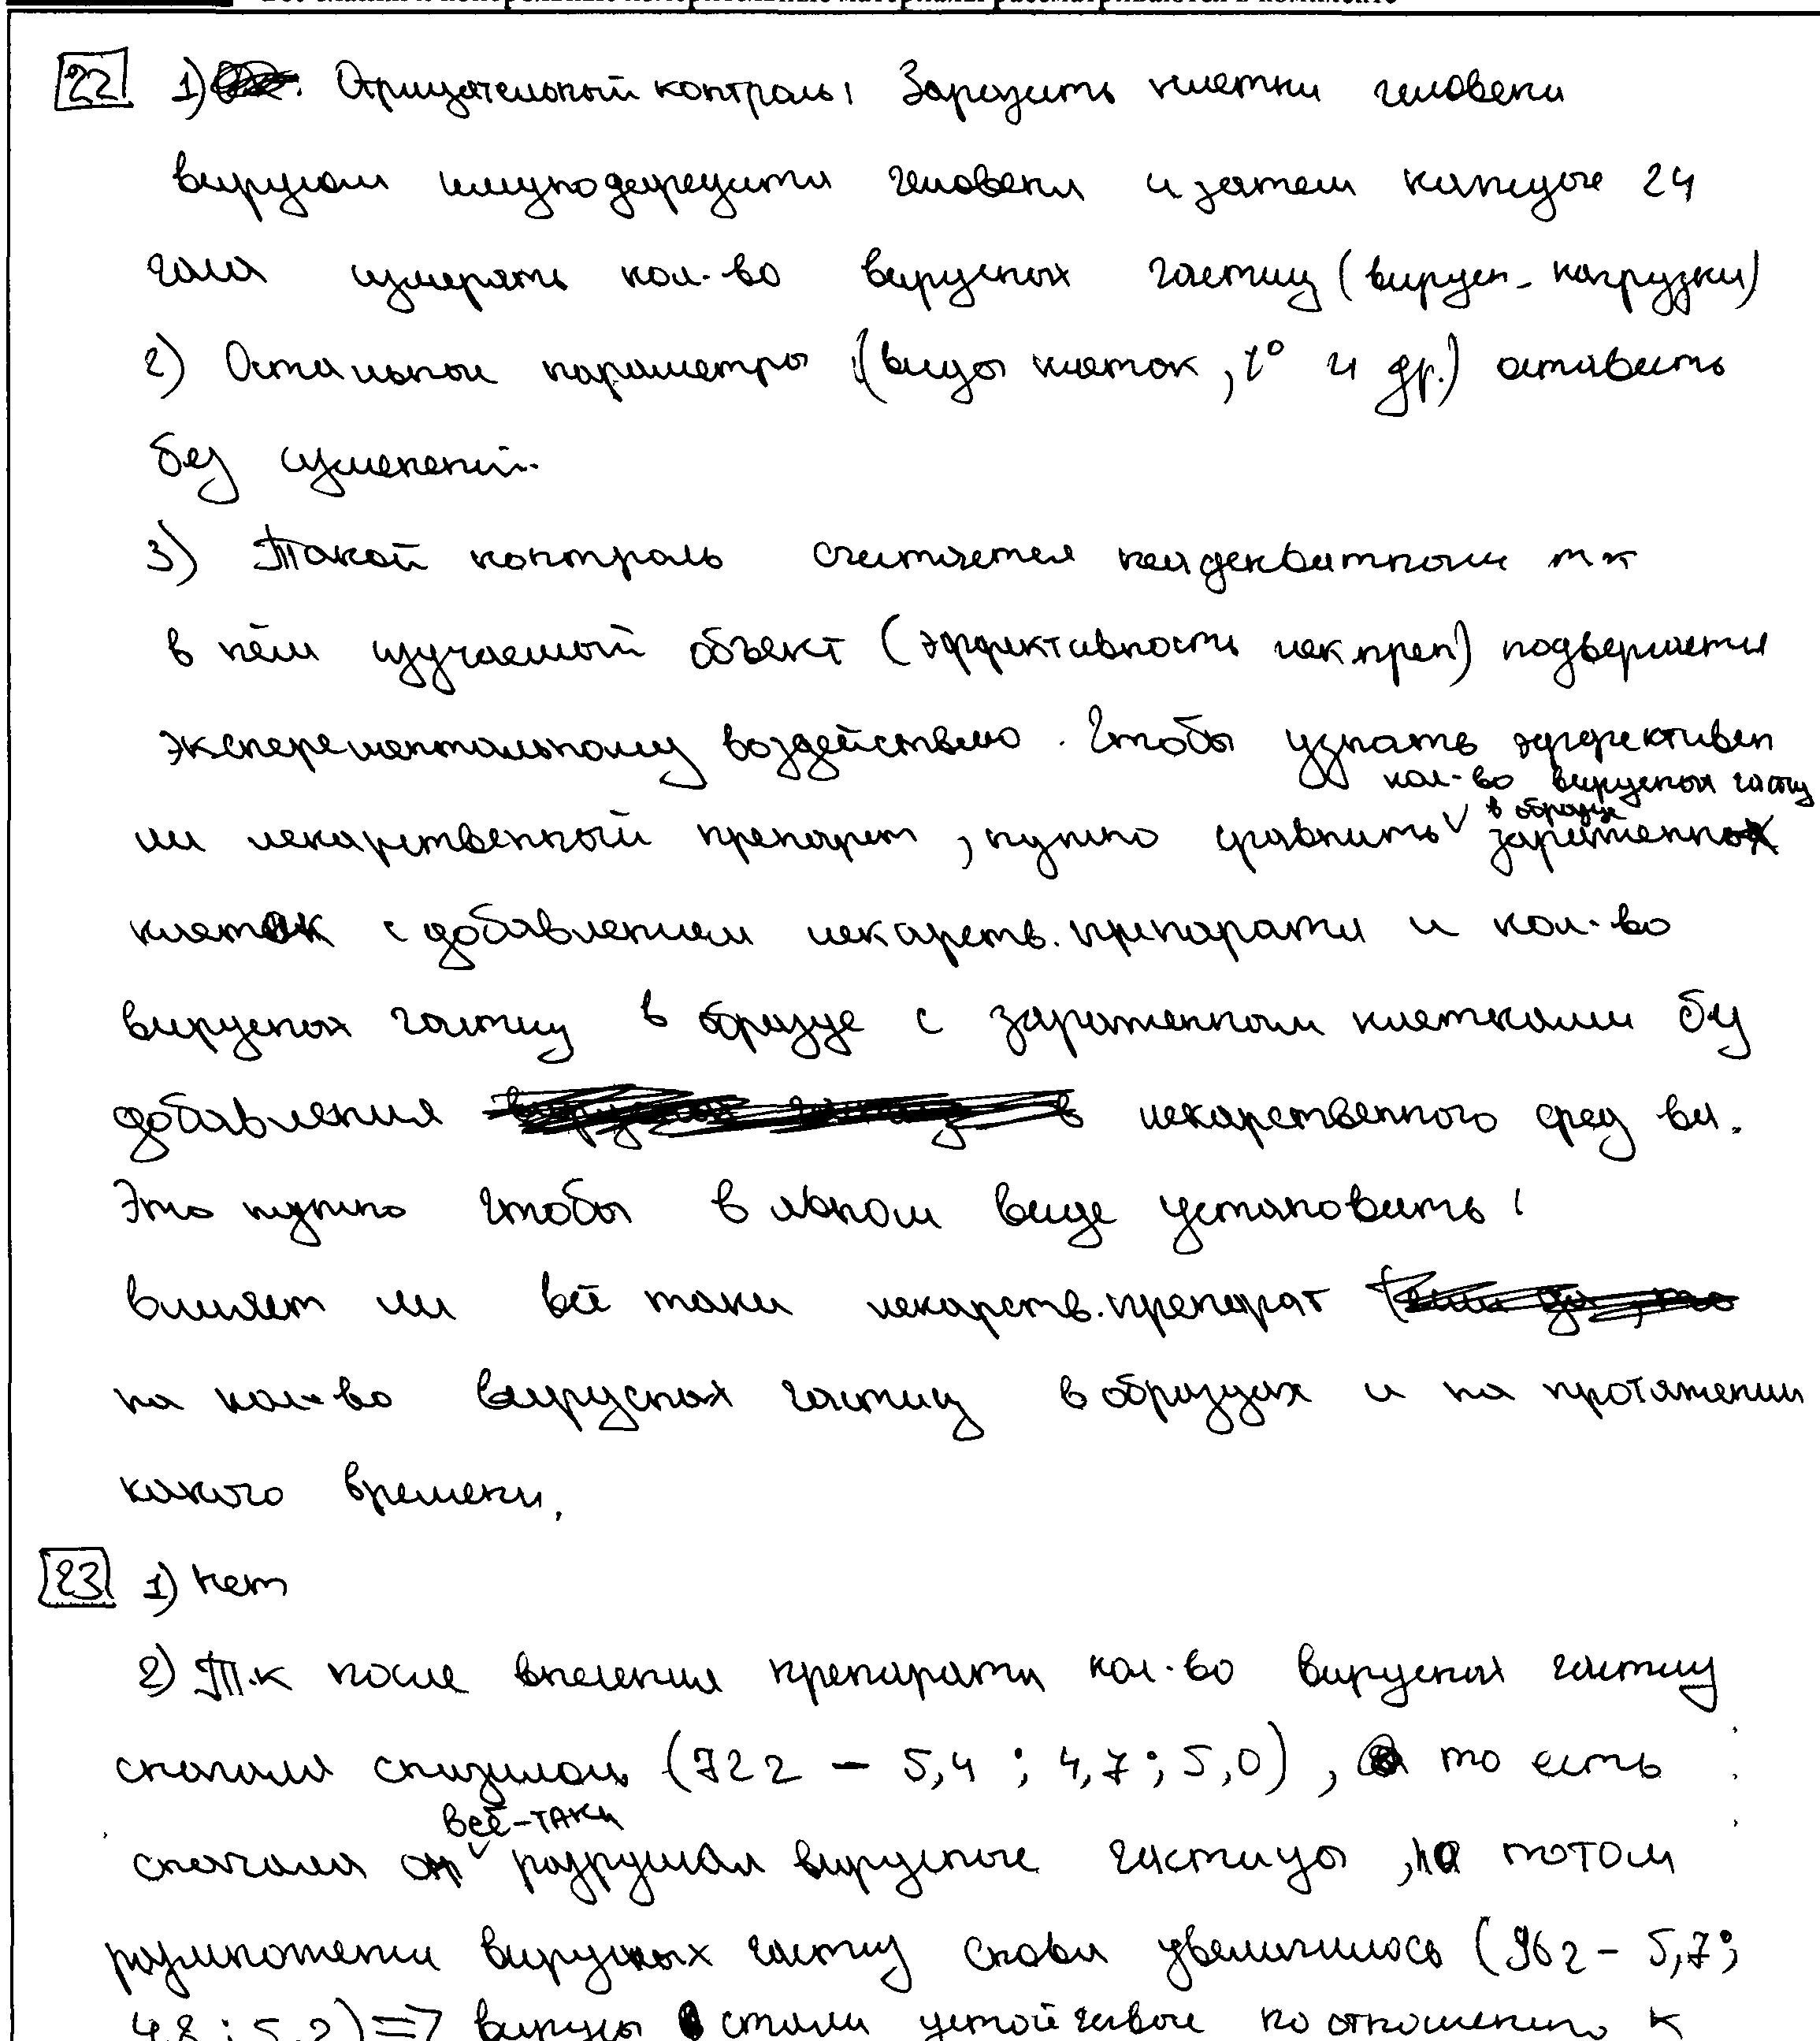 22 1) Отрицательный контроль: Заразить клетки человека
вирусом имунодефецита человека и затем каждые 24
часа измерять кол-во вирусных частиц (вирусн. нагрузки)
2) Остальные параметры (виды клеток, t° и др.) оставить
без изменений.
3) Такой контроль считается неадекватным т к
в нём изучаемый объект (эффективность лек.преп) подвергается
эксперементальному воздействию. Чтобы узнать эффективен
кол-во вирусных частиц
в образце
ли лекарственный препарат, нужно сравнить зараженных
клеток с добавлением лекарств. препарата и кол-во
вирусных частиц в образце с зараженным клетками без
добавления лекарственного сред ва.
Это нужно чтобы в явном виде установить:
влияет ли всё таки лекарств. препарат
на кол-во вирусных частиц в образцах и на протяжении
какого времени.
23 1) Нет
2) Т.к после внесения препарата кол-во вирусных частиц
сначала снизилось (72 2 – 5,4 ; 4,7 ; 5,0), то есть
всё-таки
сначала он разрушал вирусные частицы, но потом
размножение вирусных частиц снова увеличилось (96 2 – 5,7;
4,8 ; 5,2) => вирусы стали устойчивое по отношению к